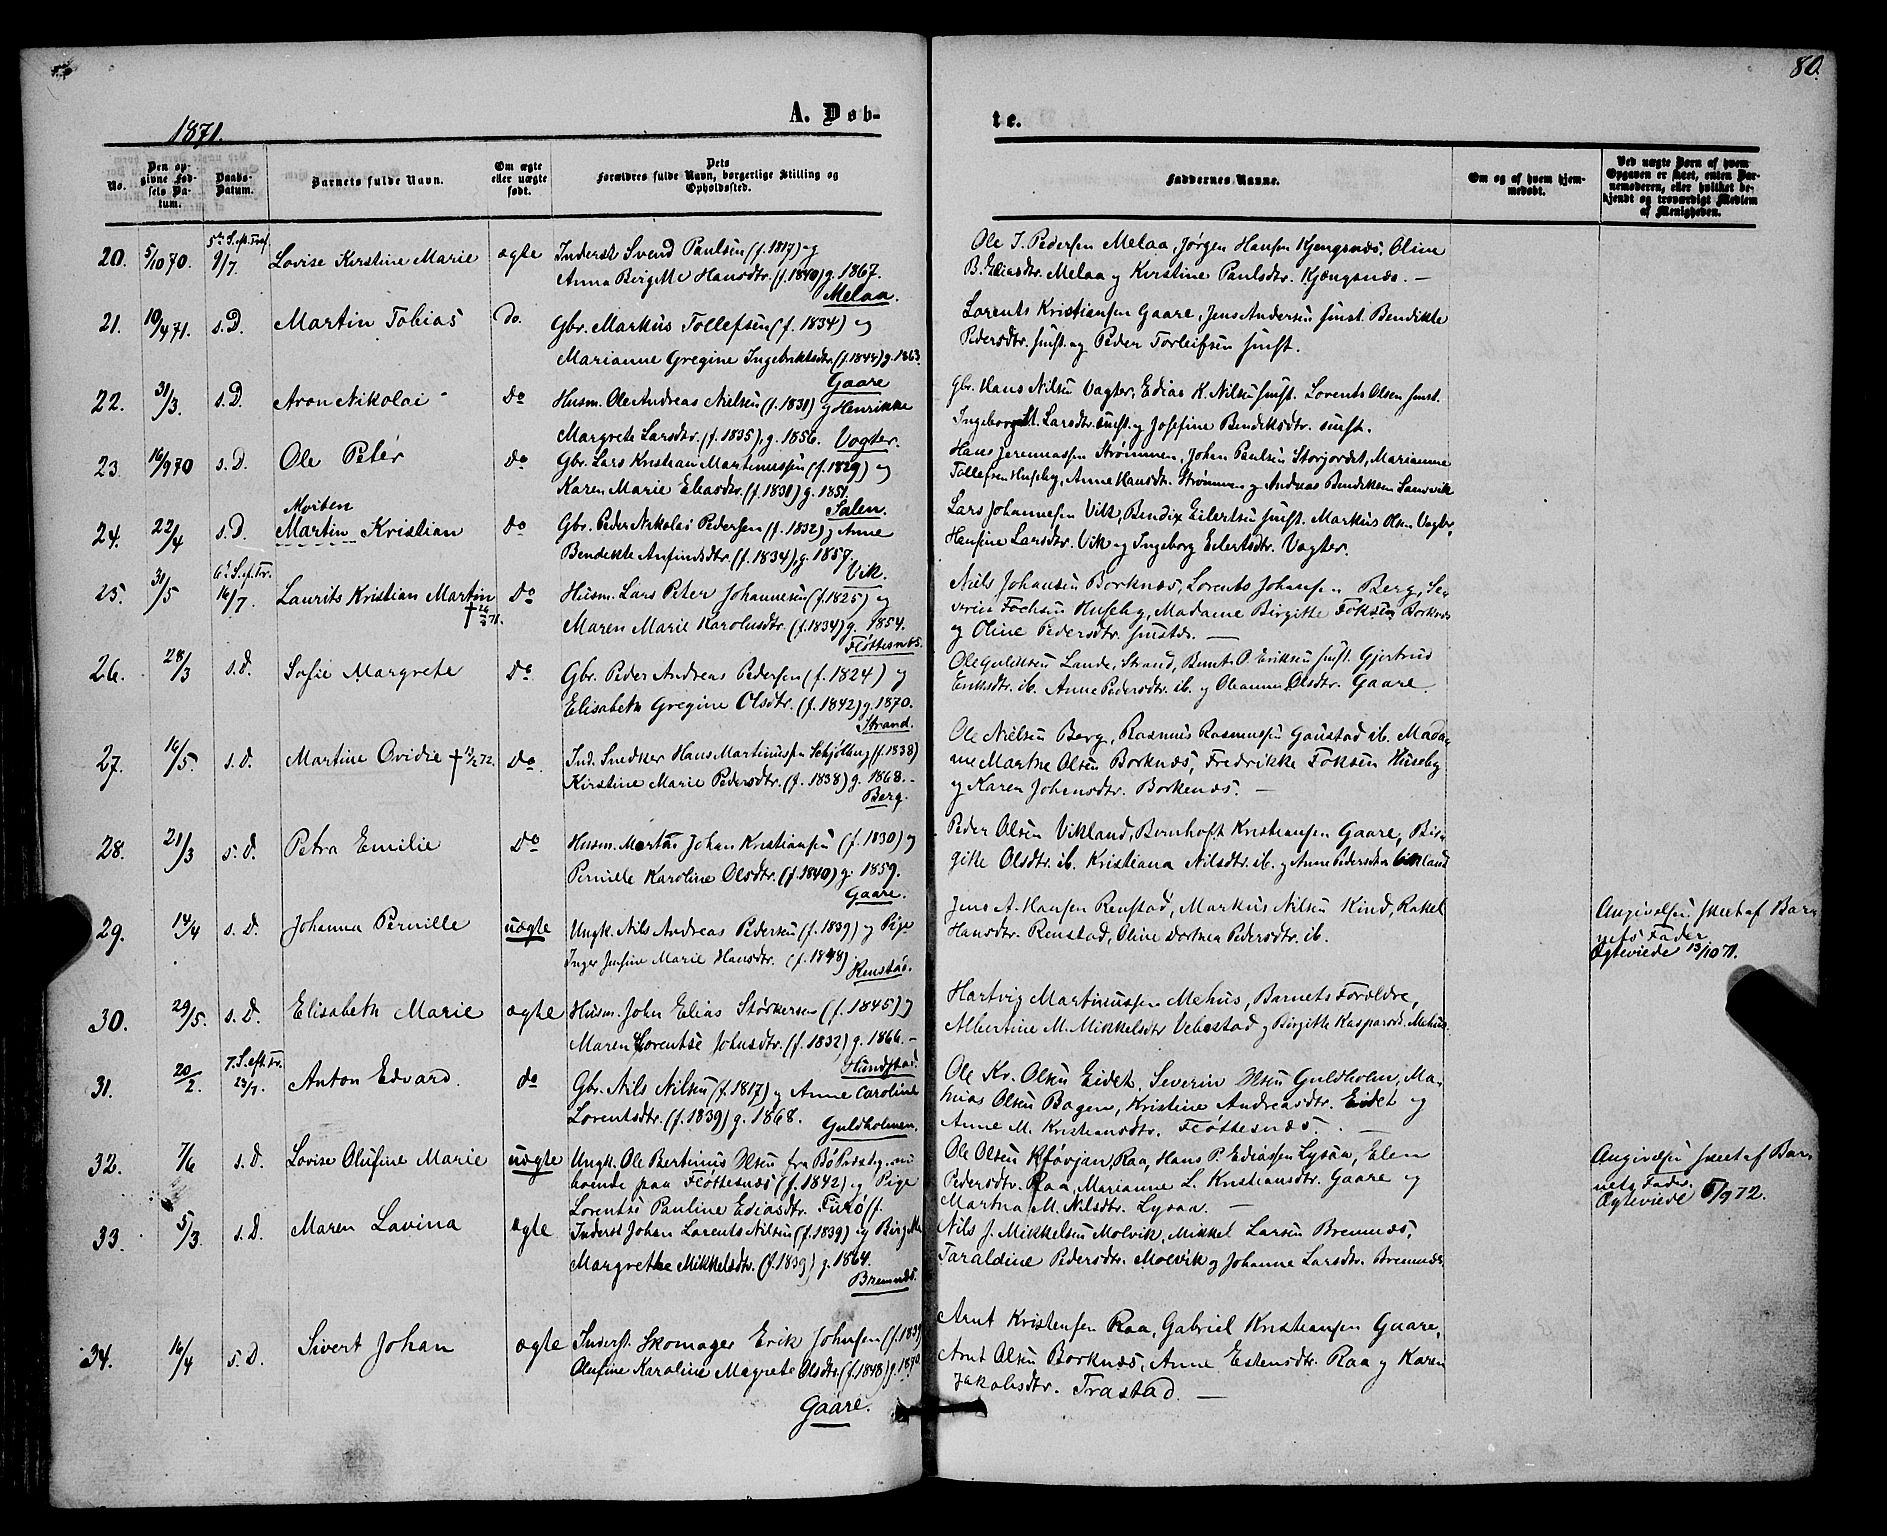 80.
1871.
A. Døb-
te.
No.
Den op-
givne Fød-
sels Da-
tum.
Daabs-
Datum.
Barnets fulde Navn.
Om ægte
eller uægte
født.
Dets
Forældres fulde Navn, borgerlige Stilling og
Opholdssted.
Faddernes Navne.
Om og af hvem hjem-
medøbt.
Ved uægte Børn af hvem
Opgaven er skeet, enten Bar-
nemoderen, eller hvilket be-
kjendt og troværdigt Medlem
af Menigheden.
20. 5/10 70. 5te S. eft. Tref. 9/7. Lovise Kirstine Marie ægte Inderst Svend Paulsen (f. 1817) og
Anna Birgitte Hansdtr. (f. 1840) g. 1867.
Melaa.
Ole J. Pedersen Melaa, Jørgen Hansen Kjengsnæs, Oline
B. Eliasdtr. Melaa og Kirstine Paulsdtr. Kjængsnæs. —
21. 10/4 71. s. D. Martin Tobias do. Gbr. Markus Tollefsen (f. 1834) og
Marianne Gregine Ingebriktsdtr. (f. 1844) g. 1863.
Gaare
Lorents Kristiansen Gaare, Jens Andersen smst. Bendikte
Pedersdtr. smst. og Peder Torleifsen smst.
22. 31/3. s. D. Aron Nikolai do Husm. Ole Andreas Nielsen (f. 1831) og Henrikke
Margrete Larsdtr. (f. 1835), g. 1856. Vogter.
Gbr. Hans Nilsen Vagter, Edias K. Nilsen smst. Lorents Olsen smst.
Ingeborg M. Larsdtr. smst. og Josefine Bendiksdtr. smst.
23. 16/9 70 s. D. Ole Peter do Gbr. Lars Kristian Martinussen (f. 1829) og
Karen Marie Eliasdtr. (f. 1831) g. 1851.
Salen.
Hans Jeremiassen Strømmen, Johan Paulsen Storjordet, Marianne
Tollefsen Huseby, Anne Hansdtr. Strømmen og Andreas Bendiksen Sandvik
24. 22/4 s. D. Morten
Martin Kristian do Gbr. Peder Nikolai Pedersen (f. 1832) og Anne
Bendikte Anfindsdtr. (f. 1834), g. 1857.
Vik.
Lars Johannesen Vik, Bendix Eilertsen smst. Markus Olsen Vagter,
Hansine Larsdtr. Vik og Ingeborg Eilertsdtr. Vagter.
25. 31/5 6te S. ef. Tr. 16/7. Laurits Kristian Martin do Husm. Lars Peter Johannesen (f. 1825) og
Maren Marie Karolusdtr. (f. 1834) g. 1854.
Fløttesnæs.
Niels Johansen Borknæs, Lorents Johansen Berg, Se-
verin Fochsen Huseby, Madame Birgitte Foksen Borknæs
og Oline Pedersdtr. smstds. —
26. 28/3 s. D. Sofie Margrete do. Gbr. Peder Andreas Pedersen (f. 1824) og
Elisabeth Gregine Olsdtr. (f. 1842) g. 1870.
Strand.
Ole Guldksen Lande, Strand, Bernt O. Eriksen smst. Gjertrud
Eriksdtr. ib. Anne Pedersdtr. ib. og Oleanna Olsdtr. Gaare.
27. 16/5. s. D. Martine Ovidie † 13/2 72. do. Ind. Snedker Hans Martinussen Schjølberg (f. 1838)
Kirstine Marie Pedersdtr. (f. 1838) g. 1868. —
Berg.
Ole Nielsen Berg, Rasmus Rasmussen Gaustad ib. Mada-
me Martha Olsen Borknæs, Fredrikke Foksen Huseby
og Karen Johansdtr. Borkenæs. —
28. 21/3 s. D. Petra Emilie do Husm. Martin Johan Kristiansen (f. 1830) og
Pernille Karoline Olsdtr. (f. 1840) g. 1859.
Gaare.
Peder Olsen Vikland, Bernhoft Kristiansen Gaare, Bir-
gitte Olsdtr. ib. Kristiana Nilsdtr. ib. og Anne Pedersdtr Vikland
29. 14/4 s. D. Johanna Pernille uægte Ungk. Nils Andreas Pedersen (f. 1839) og Pige
Inger Josfine Marie Hansdtr. (f. 1848)
Renstad.
Jens A. Hansen Renstad, Markus Nilsen Kind, Rakel
Hansdtr. Renstad, Oline Dortea Pedersdtr. ib.
Angivelsen skeet af Bar-
nets Fader
Ægteviede 13/10 71.
30. 29/5. s. D. Elisabeth Marie ægte Husm. John Elias Størkersen (f. 1845) og
Maren Lorentse Johnsdtr. (f. 1832) g. 1866. —
Hundstad.
Hartvig Martinussen Mehus, Barnets Forældre,
Albertine M. Mikkelsdtr Vebostad og Birgitte Kaspard. Mehus.
31. 20/2. 7. S. eft. Tr. 23/7. Anton Edvard. do Gbr. Nils Nilsen (f. 1817) og Anne Caroline
Lorentsdtr. (f. 1839) g. 1868. Guldholmen.
Ole Kr. Olsen Eidet, Severin Olsen Guldholm, Ma-
thias Olsen Bogen, Kristine Andreasdtr. Eidet og
Anne M. Kristiansdtr. Fløttesnæs. —
32. 7/6 s. D. Lovise Olufine Marie uægte Ungk. Ole Bertinus Olsen fra Bø Præsteg. nu
boende paa Fløttesnæs (f. 1842) og Pige
Lorentse Pauline Ediasdtr.
Ole Olsen Raa, Hans P. Ediassen Lysaa, Elen
Pedersdtr. Raa, Marianne L. Kristiansdtr. Gaare og
Martha M. Nilsdtr. Lysaa. —
Angivelsen skeet af Bar-
nets Fader.
Ægteviede 5/9 72.
33. 5/3. s. D. Maren Lavina ægte Inderst Johan Lorents Nilsen (f. 1839) og Birgitte
Margrethe Mikkelsdtr. (f. 1839) g. 1864.
Bremnæs.
Nils J. Mikkelsen Molvik, Mikkel Larsen Bremnæs,
Taraldine Pedersdtr. Molvik og Johanne Larsdtr. Bremnæs
34. 16/4 s. D. Sivert Johan ægte Inderst. Skomager Erik Johnsen (f. 1839)
Olufine Karoline Magrete Olsdtr. (f. 1848) g. 1870
Gaare.
Arnt Kristensen Raa, Gabriel Kristiansen Gaare,
Arnt Olsen Borknæs, Anne Estensdtr. Raa og Karen
Jakobsdtr. Trastad. —